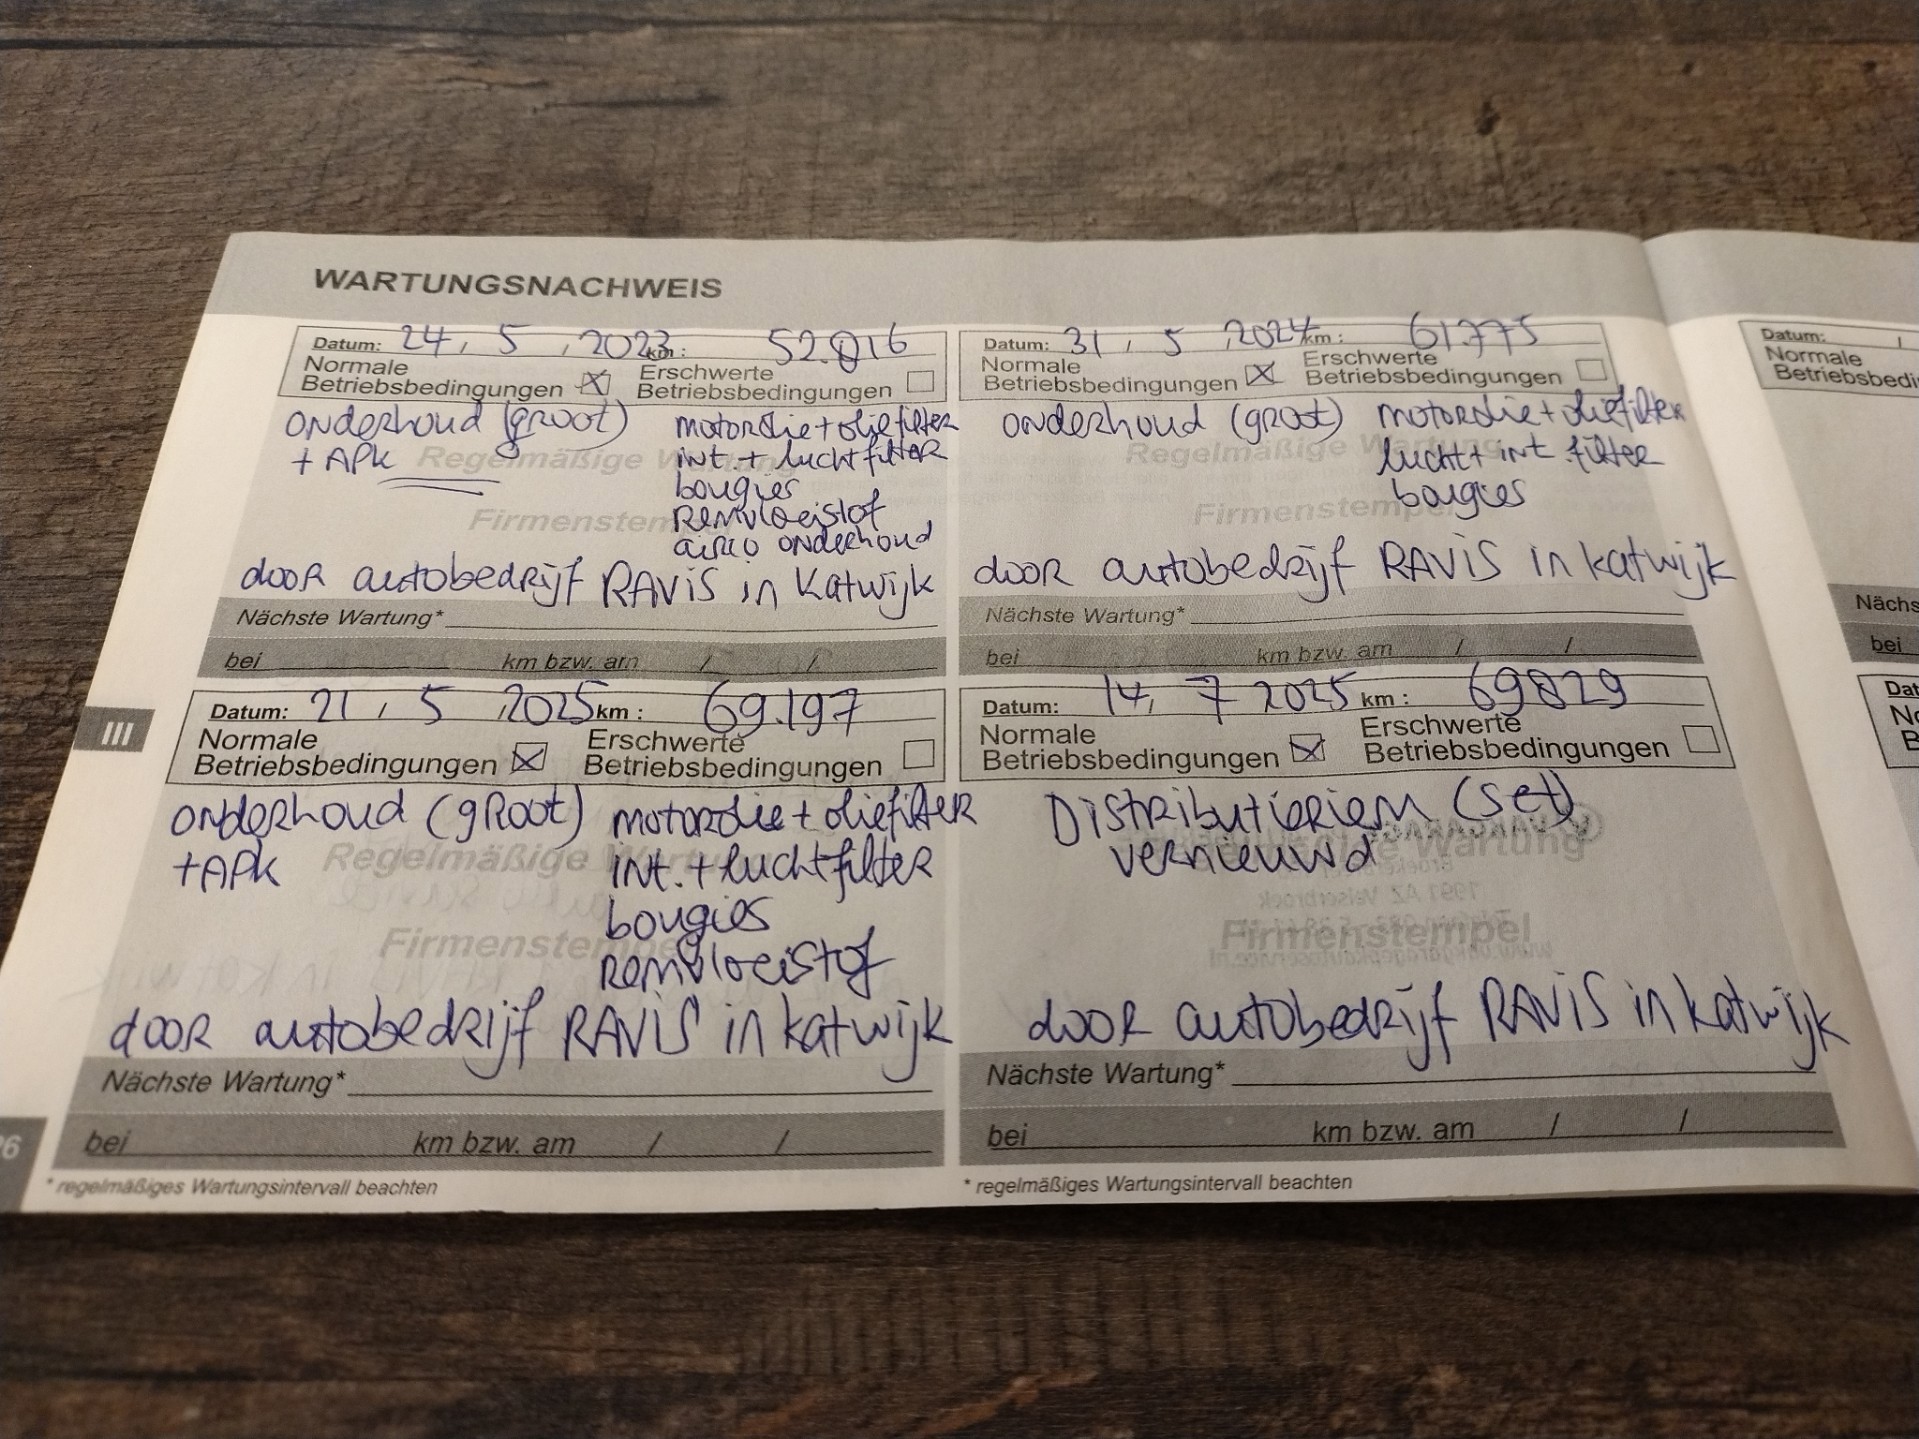 WARTUNGSNACHWEIS
Datum: 24 / 5 / 2023 km: 52.816
Normale Betriebsbedingungen ☒ Erschwerte Betriebsbedingungen ☐
onderhoud (groot) motorolie + oliefilter
+ APK int. + luchtfilter
bougies
Remvloeistof
airco onderhoud
Regelmäßige
Firmenstem
door autobedrijf RAVIS in Katwijk
Nächste Wartung*
bei km bzw. am / /
Datum: 31 / 5 / 2024 km: 61.775
Normale Betriebsbedingungen ☒ Erschwerte Betriebsbedingungen ☐
onderhoud (groot) motorolie + oliefilter
lucht + int. filter
bougies
Regelmäßige Wartung
Firmenstempel
door autobedrijf RAVIS in Katwijk
Nächste Wartung*
bei km bzw. am / /
III
Datum: 21 / 5 / 2025 km: 69.197
Normale Betriebsbedingungen ☒ Erschwerte Betriebsbedingungen ☐
onderhoud (groot) motorolie + oliefilter
+ APK int. + luchtfilter
bougies
Remvloeistof
Regelmäßige Wartung
Firmenstempel
door autobedrijf RAVIS in Katwijk
Nächste Wartung*
bei km bzw. am / /
* regelmäßiges Wartungsintervall beachten
Datum: 14, 7 2025 km: 69829
Normale Betriebsbedingungen ☒ Erschwerte Betriebsbedingungen ☐
Distributieriem (set)
vernieuwd
Wartung
Firmenstempel
door autobedrijf RAVIS in Katwijk
Nächste Wartung*
bei km bzw. am / /
* regelmäßiges Wartungsintervall beachten
26
Datum: /
Normale
Betriebsbedi
Nächs
bei
Dat
No
B